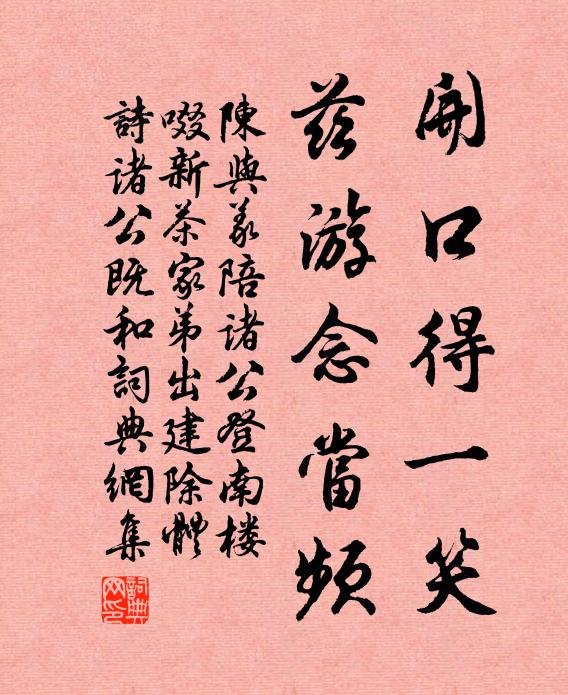 開口得一笑
茲游念當頻
陳與義陪諸公登南楼
啜新茶家弟出建除體
詩諸公既和詞典網集
詞典网印